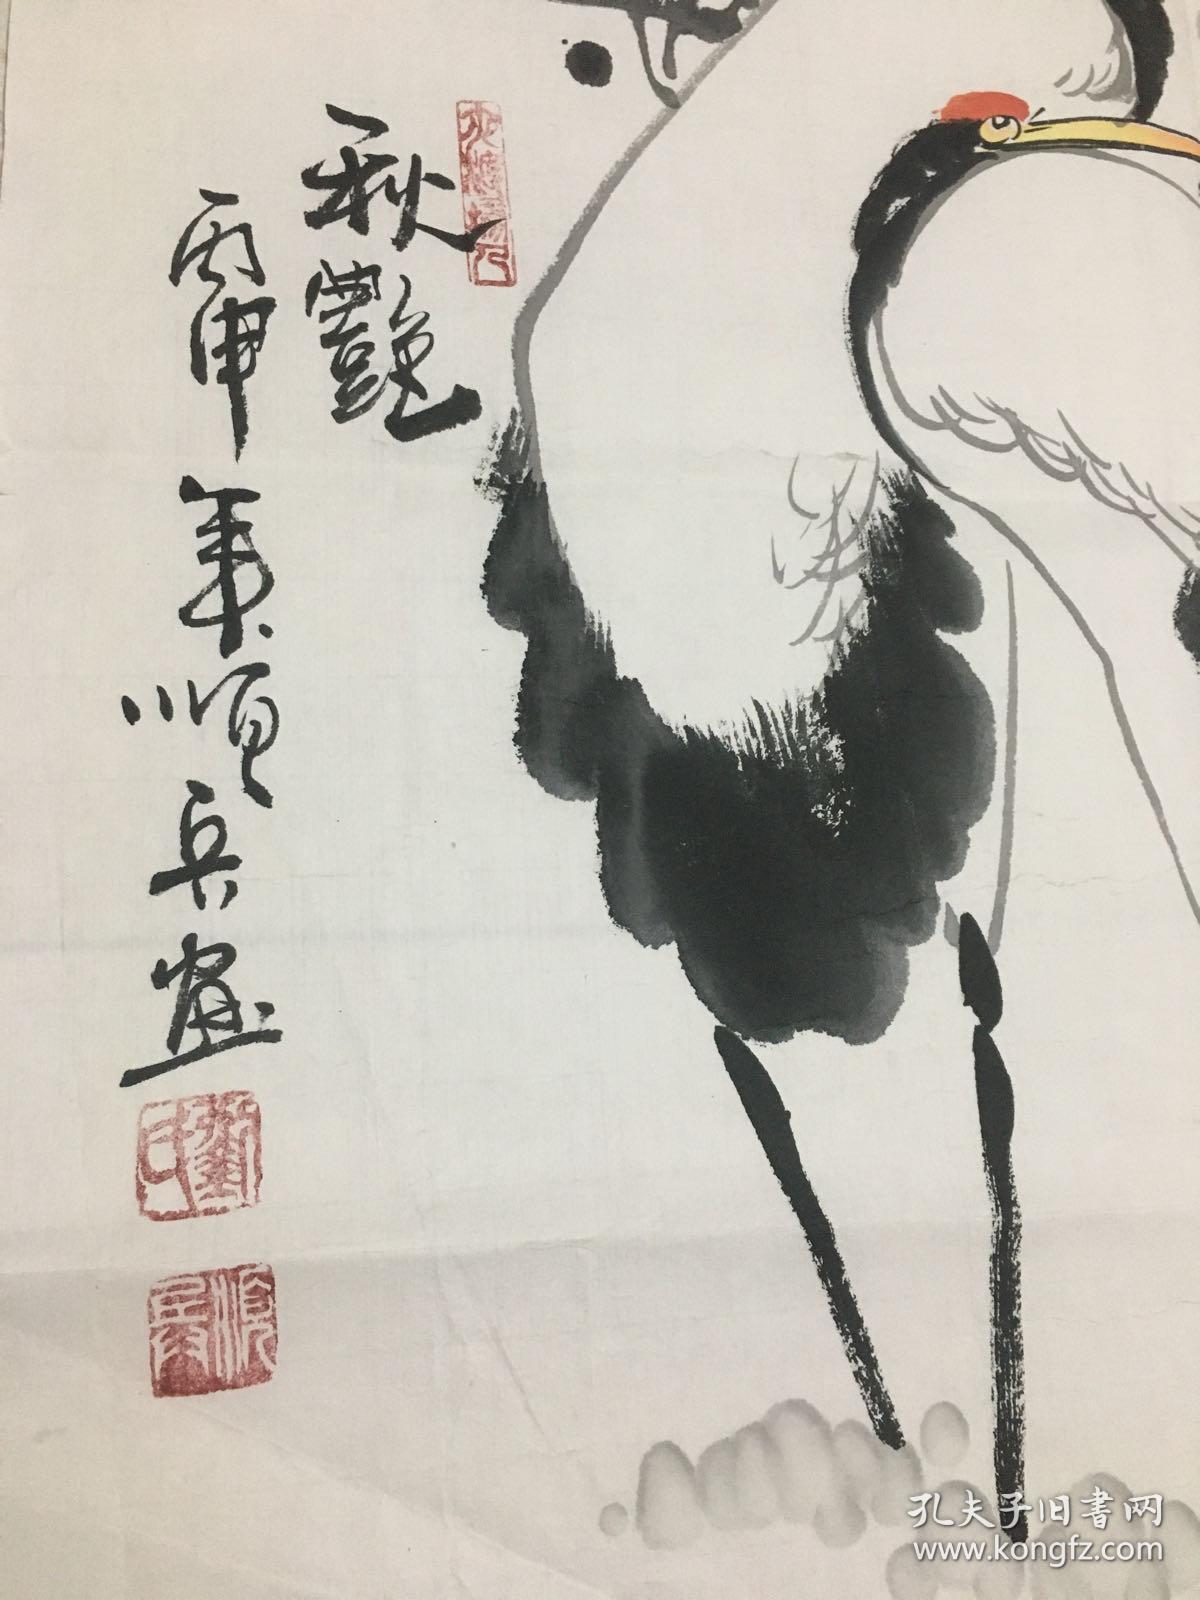 秋艷
丙申年順兵畫
孔夫子旧書网
www.kongfz.com